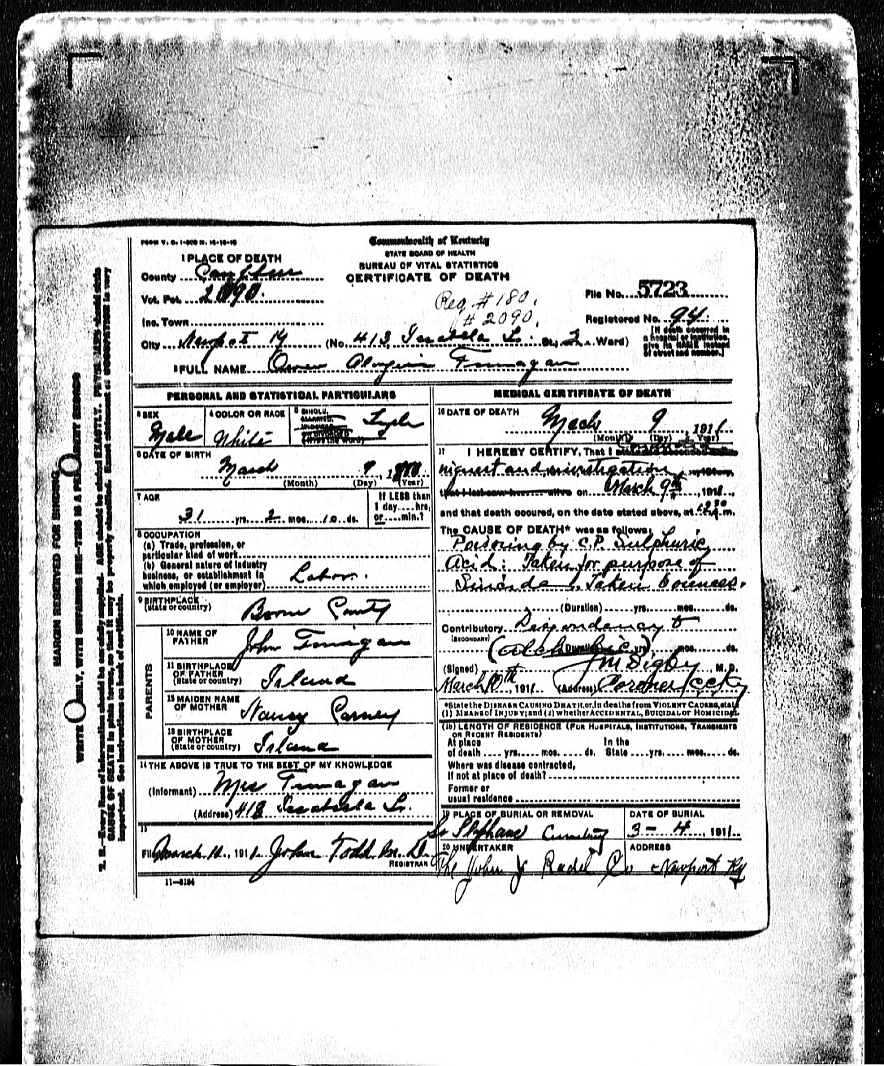 FORM V. S. 1-
Commonwealth of Kentucky
STATE BOARD OF HEALTH
BUREAU OF VITAL STATISTICS
CERTIFICATE OF DEATH
1 PLACE OF DEATH
County Campbell
Vot. Pct. 2090.
Inc. Town
City Newport Ky (No. 413 Isabella St. St., 2 Ward)
Reg. #180.
# 2090.
File No. 5723
Registered No. 94
[If death occurred in a hospital or institution, give its NAME instead of street and number.]
2 FULL NAME Owen Aloysius Finnagan
PERSONAL AND STATISTICAL PARTICULARS
3 SEX Male
4 COLOR OR RACE White
5 SINGLE, MARRIED, WIDOWED, OR DIVORCED (Write the word)
6 DATE OF BIRTH
March 9
(Month) (Day) (Year)
7 AGE
31 yrs. 2 mos. 10 ds.
If LESS than 1 day....hrs, or....min.?
8 OCCUPATION
(a) Trade, profession, or particular kind of work
(b) General nature of industry business, or establishment in which employed (or employer) Labor.
9 BIRTHPLACE (State or country) Boone County
PARENTS
10 NAME OF FATHER John Finnigan
11 BIRTHPLACE OF FATHER (State or country) Irland
12 MAIDEN NAME OF MOTHER Nancy Carney
13 BIRTHPLACE OF MOTHER (State or country) Irland
14 THE ABOVE IS TRUE TO THE BEST OF MY KNOWLEDGE
(Informant) Mrs Finnagan
(Address) 413 Isabella St.
15
Filed March 11, 1911. John Todd M. D.
REGISTRAR
11-3184
MEDICAL CERTIFICATE OF DEATH
16 DATE OF DEATH
March 9 1911
(Month) (Day) (Year)
17 I HEREBY CERTIFY, That I
inquest and investigation
that I last saw h alive on March 9th, 1911.
and that death occured, on the date stated above, at m.
The CAUSE OF DEATH* was as follows:
Poisoning by C.P. Sulphuric
Acid: Taken for purpose of
Suicide
(Duration) yrs. mos. ds.
Contributory Despondency
(SECONDARY) (alcoholic)
(Duration) yrs. mos. ds.
(Signed) J M Digby M. D.
March 10th 1911 (Address) Coroner C.C. Ky
*State the DISEASE CAUSING DEATH, or, in deaths from VIOLENT CAUSES, state
(1) MEANS OF INJURY; and (2) whether ACCIDENTAL, SUICIDAL or HOMICIDAL
18 LENGTH OF RESIDENCE (FOR HOSPITALS, INSTITUTIONS, TRANSIENTS OR RECENT RESIDENTS)
At place of death yrs. mos. ds. In the State yrs. mos. ds.
Where was disease contracted,
If not at place of death?
Former or usual residence
19 PLACE OF BURIAL OR REMOVAL
St Stephans Cemetery
DATE OF BURIAL
3- 4, 1911
20 UNDERTAKER
The John J Radel Co
ADDRESS
Newport Ky
MARGIN RESERVED FOR BINDING
WRITE ONLY, WITH UNFADING INK—THIS IS A PERMANENT RECORD
N. B.—Every item of information should be carefully supplied. AGE should be stated EXACTLY. PHYSICIANS should state
CAUSE OF DEATH in plain terms, so that it may be properly classified. Exact statement of OCCUPATION is very
important. See instructions on back of certificate.